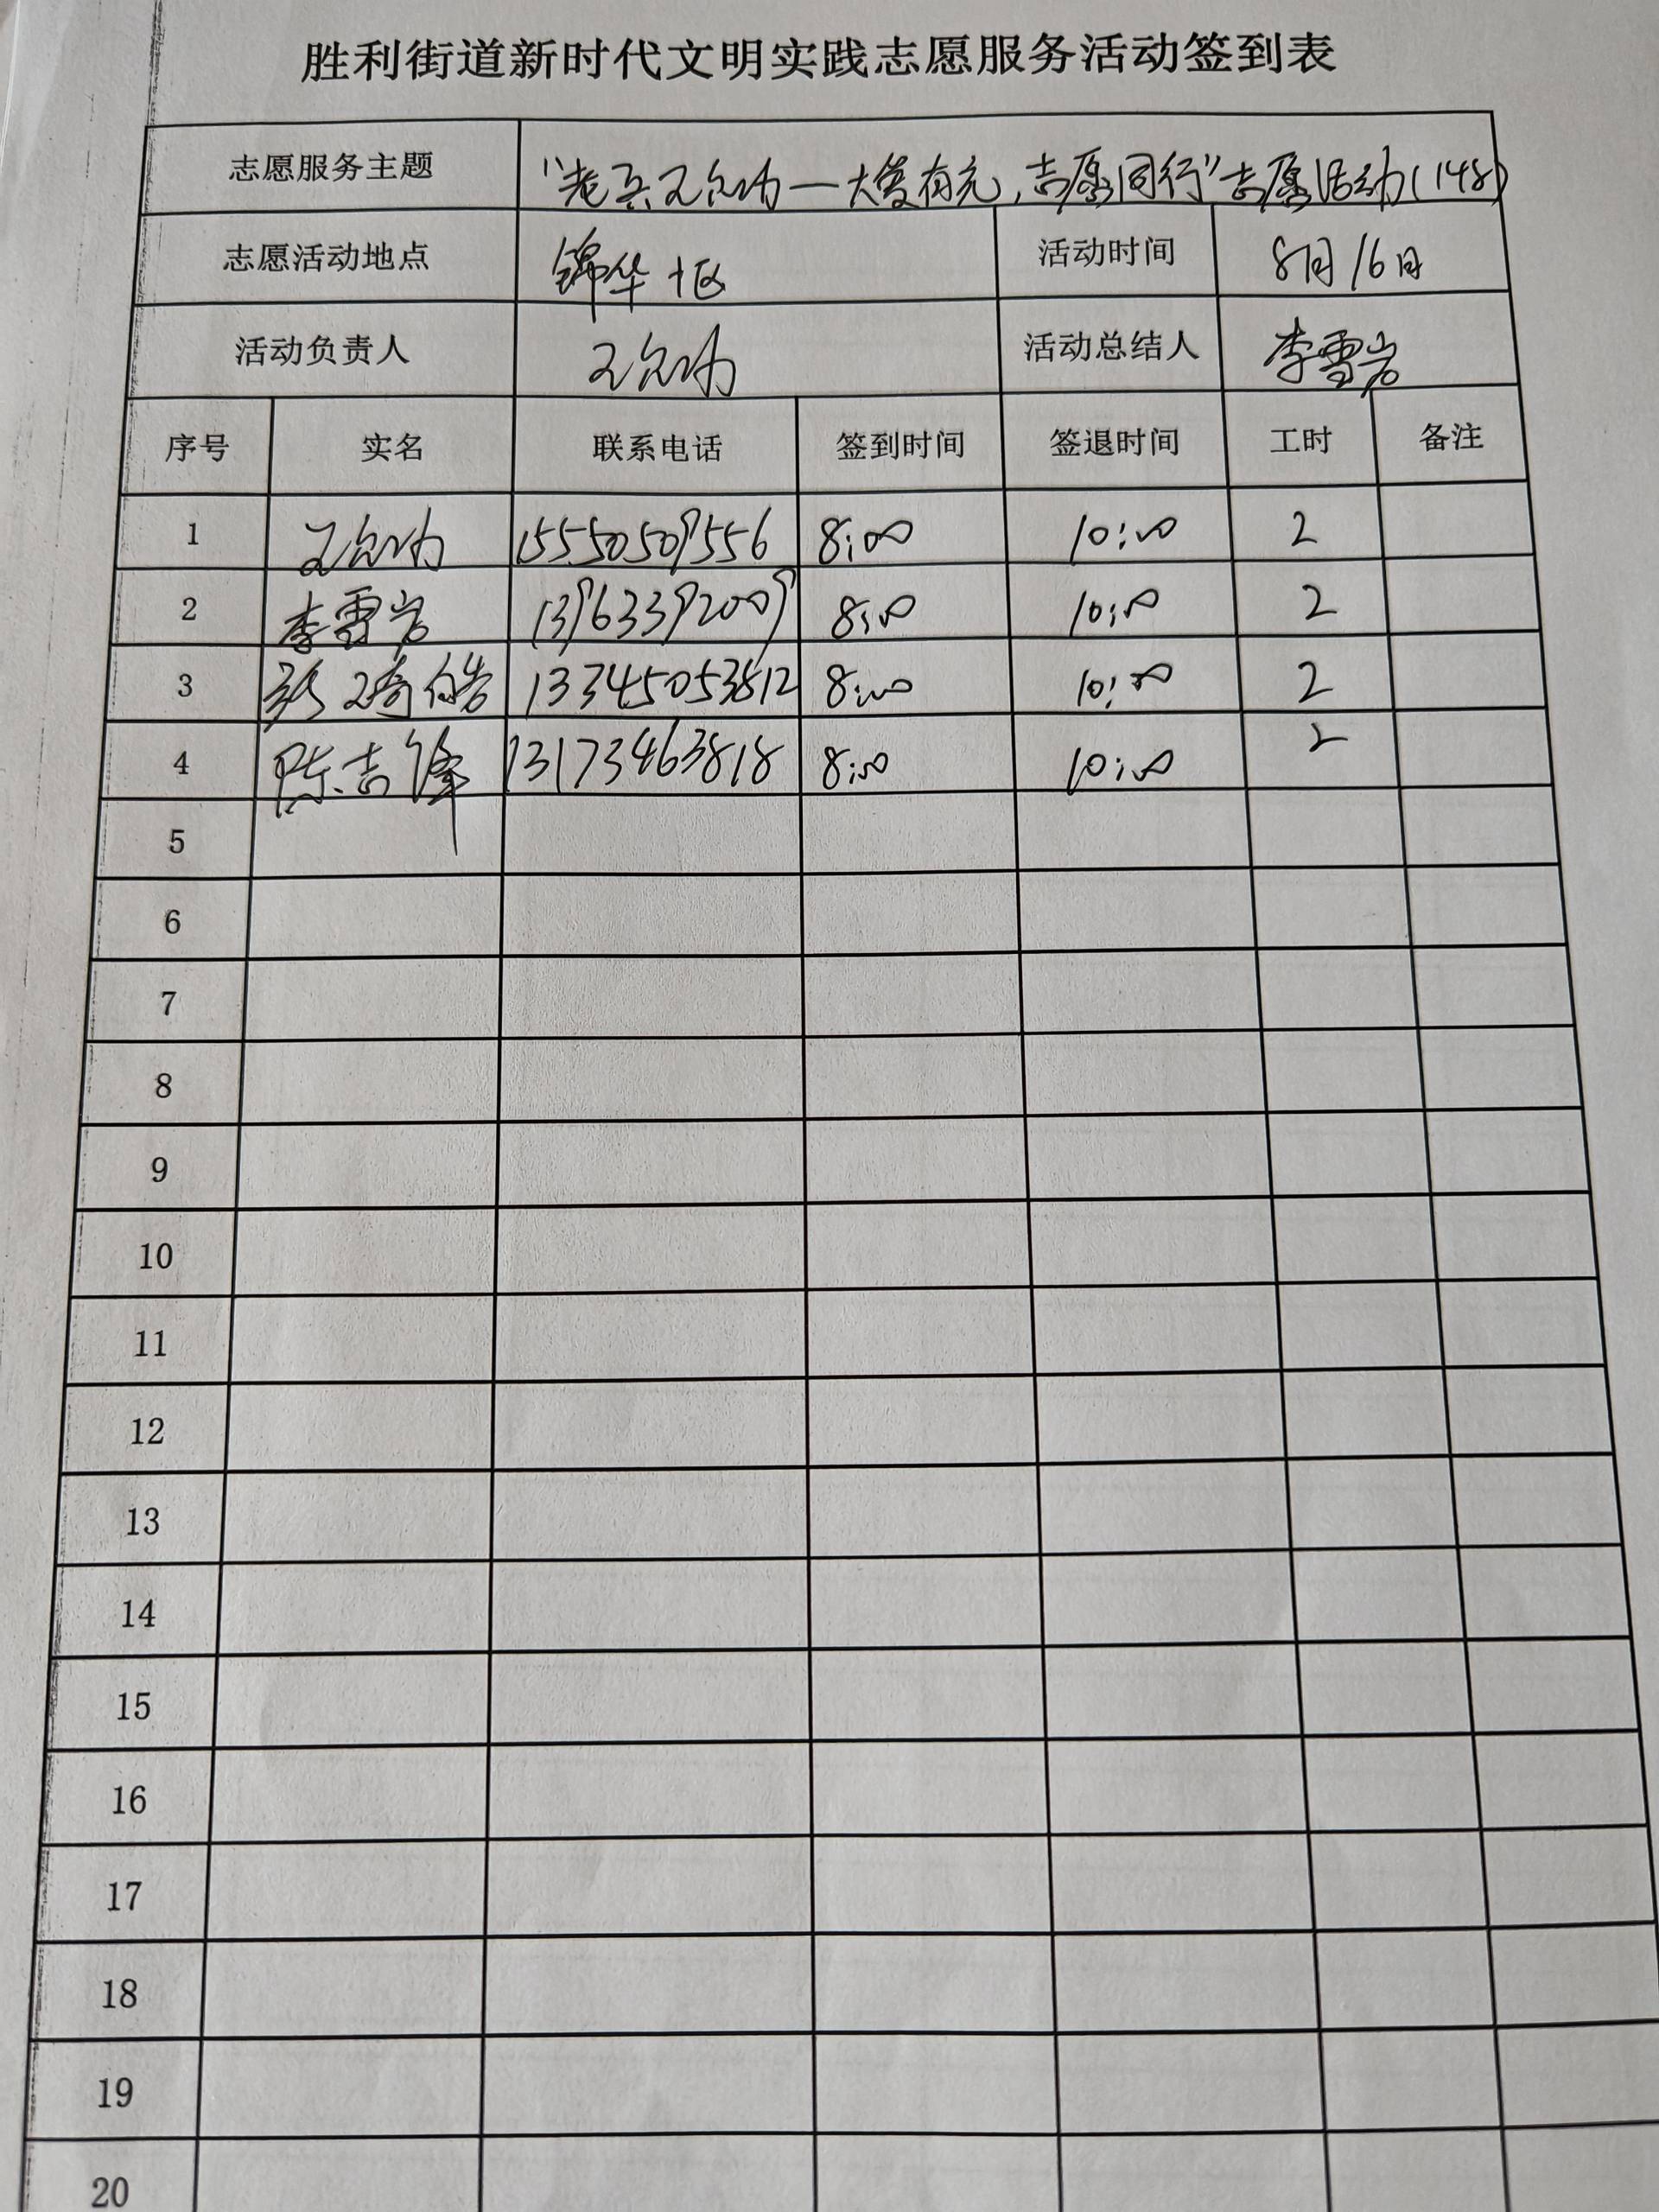 胜利街道新时代文明实践志愿服务活动签到表
志愿服务主题 "老兵王允功—大爱有光,志愿同行"志愿活动(148)
志愿活动地点 锦华十区 活动时间 8月16日
活动负责人 王允功 活动总结人 李雪岩
序号 实名 联系电话 签到时间 签退时间 工时 备注
1 王允功 15550509556 8:00 10:00 2
2 李雪岩 13963392009 8:00 10:00 2
3 13345053812 8:00 10:00 2
4 陈吉锋 13173463818 8:00 10:00 2
5
6
7
8
9
10
11
12
13
14
15
16
17
18
19
20